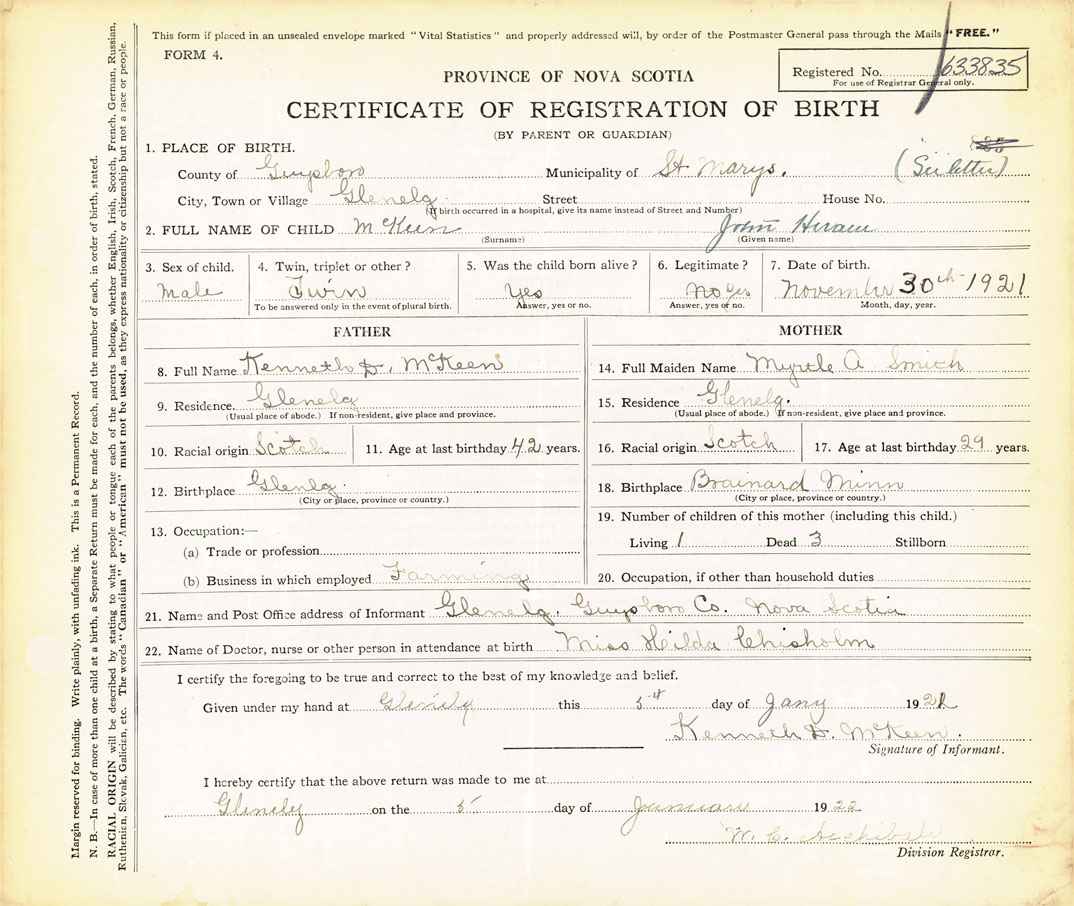 This form if placed in an unsealed envelope marked "Vital Statistics" and properly addressed will, by order of the Postmaster General pass through the Mails "FREE."
FORM 4.
Registered No. 633835
For use of Registrar General only.
PROVINCE OF NOVA SCOTIA
CERTIFICATE OF REGISTRATION OF BIRTH
(BY PARENT OR GUARDIAN)
1. PLACE OF BIRTH.
County of Guysboro Municipality of St. Marys. (See letter)
City, Town or Village Glenelg Street House No.
(If birth occurred in a hospital, give its name instead of Street and Number)
2. FULL NAME OF CHILD McKeen John Hiram
(Surname) (Given name)
3. Sex of child. 4. Twin, triplet or other? 5. Was the child born alive? 6. Legitimate? 7. Date of birth.
Male Twin Yes No Yes November 30th 1921
To be answered only in the event of plural birth. Answer, yes or no. Answer, yes or no. Month, day, year.
FATHER
8. Full Name Kenneth D. McKeen
9. Residence. Glenelg
(Usual place of abode.) If non-resident, give place and province.
10. Racial origin Scotch 11. Age at last birthday 42 years.
12. Birthplace Glenelg.
(City or place, province or country.)
13. Occupation:—
(a) Trade or profession
(b) Business in which employed Farming
MOTHER
14. Full Maiden Name Myrtle A Smith
15. Residence Glenelg.
(Usual place of abode.) If non-resident, give place and province.
16. Racial origin Scotch 17. Age at last birthday 29 years.
18. Birthplace Brainard Minn
(City or place, province or country.)
19. Number of children of this mother (including this child.)
Living 1 Dead 3 Stillborn
20. Occupation, if other than household duties
21. Name and Post Office address of Informant Glenelg. Guysboro Co. Nova Scotia
22. Name of Doctor, nurse or other person in attendance at birth Miss Hilda Chisholm
I certify the foregoing to be true and correct to the best of my knowledge and belief.
Given under my hand at Glenelg this 5th day of Jany 192
Kenneth D. McKeen.
Signature of Informant.
I hereby certify that the above return was made to me at
Glenelg on the 5 day of January 1922
W. C. Archibald
Division Registrar.
Margin reserved for binding. Write plainly, with unfading ink. This is a Permanent Record.
N. B.—In case of more than one child at a birth, a Separate Return must be made for each, and the number of each, in order of birth, stated.
RACIAL ORIGIN will be described by stating to what people or tongue each of the parents belongs, whether English, Irish, Scotch, French, German, Russian,
Ruthenian, Slovak, Galician, etc. The words "Canadian" or "American" must not be used, as they express nationality or citizenship but not a race or people.